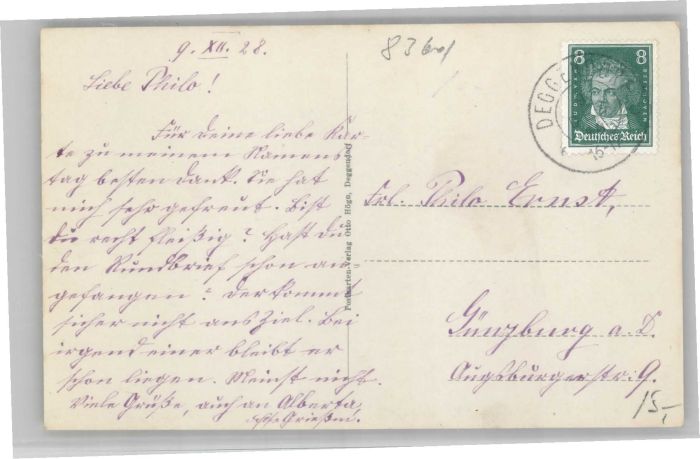 9. XII. 28.
Liebe Philo!
Für deine liebe Kar-
te zu meinem Namens
tag besten Dank. Sie hat
mich sehr gefreut. Bist
du recht fleißig? Hast du
den Rundbrief schon an-
gefangen? Der kommt
sicher nicht ans Ziel. Bei
irgend einer bleibt er
schon liegen. Meinst nicht.
Viele Grüße, auch an Alberta,
Postkarten-Verlag Otto Högn, Deggendorf
8 8
Deutsches Reich
DEGG
15-
Frl. Philo Ernst,
Günzburg a. D.
Augsburgerstr. 9.
15,-